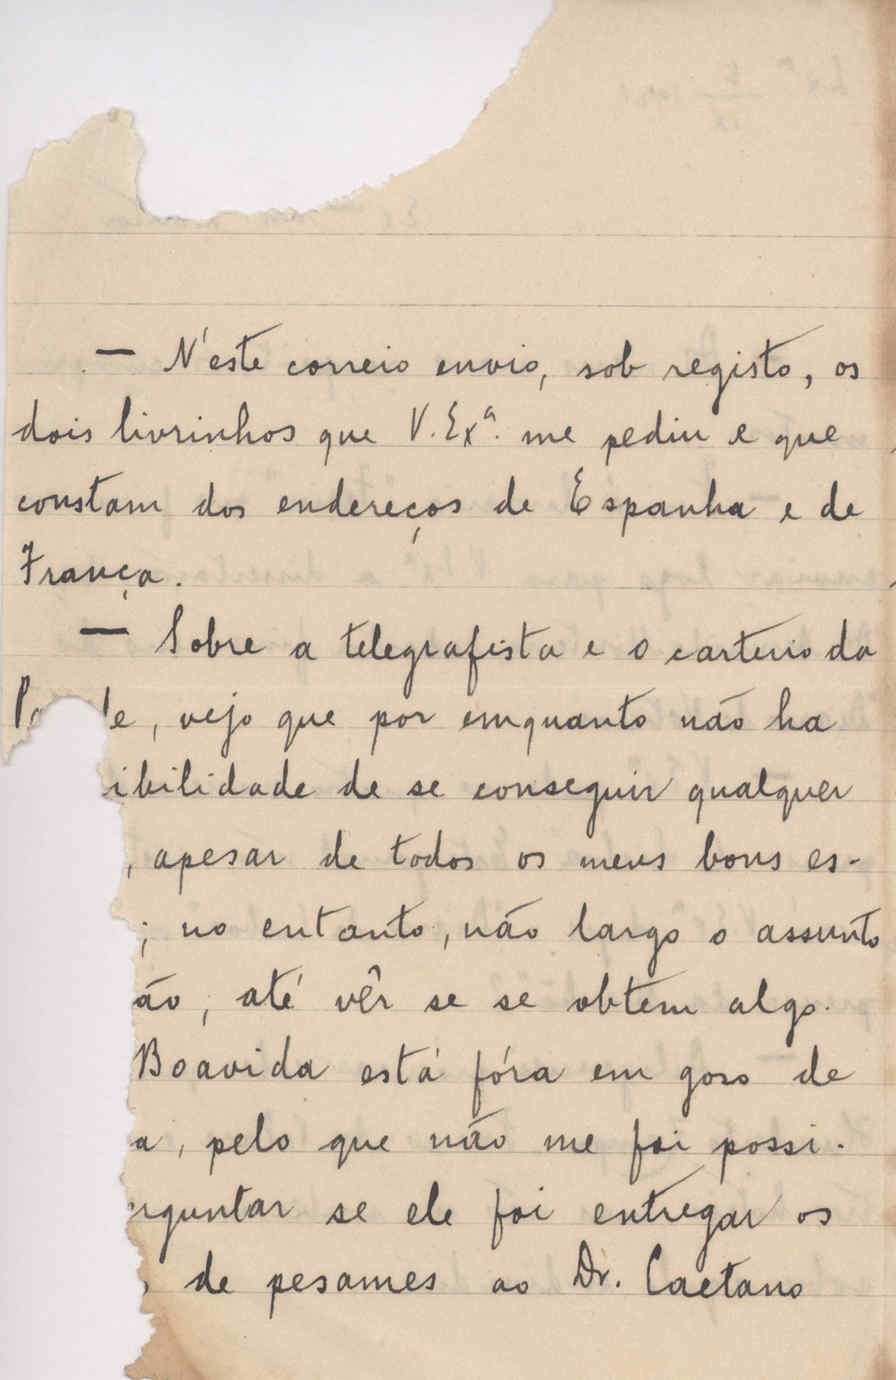 — N'este correio envio, sob registo, os
dois livrinhos que V. Exª. me pediu e que
constam dos endereços de Espanha e de
França.
— Sobre a telegrafista e o carteiro da
, vejo que por emquanto não ha
ibilidade de se conseguir qualquer
, apesar de todos os meus bons es-
; no entanto, não largo o assunto
ão, até vêr se se obtem algo.
Boavida está fóra em goso de
a, pelo que não me foi possi-
rguntar se ele foi entregar os
de pesames ao Dr. Caetano